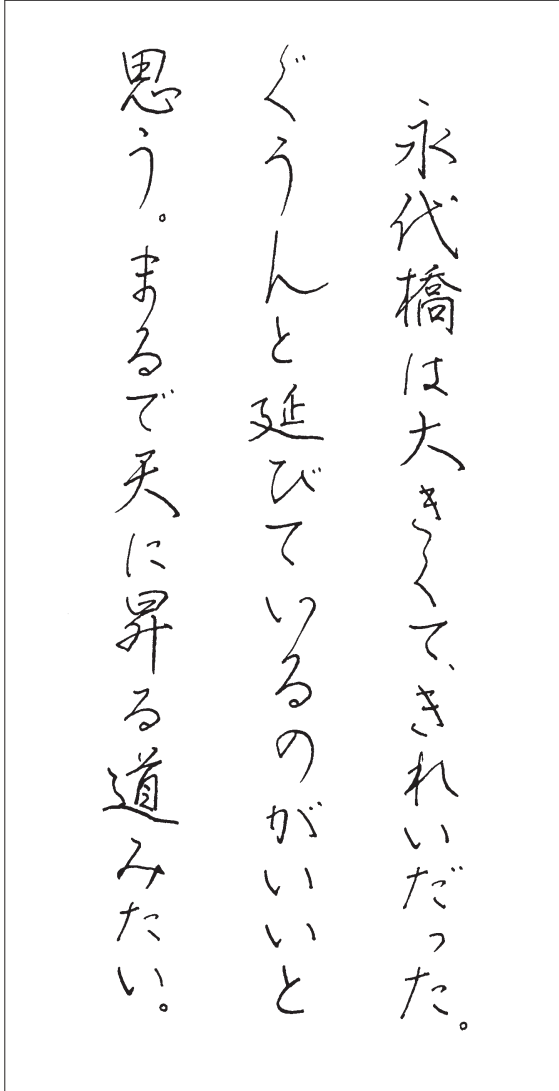 永代橋は大きくて、きれいだった。
ぐうんと延びているのがいいと
思う。まるで天に昇る道みたい。